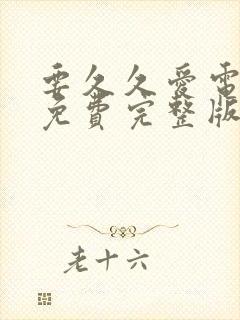 要久久爱電
免費完整版
老十六